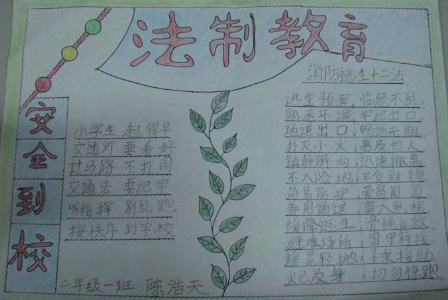 法制教育
安全到校
小学生 起得早
交通灯 要看好
过马路 不打闹
交通法 要记牢
听指挥 别乱跑
按秩序 到学校
二年级一班 陈浩天
消防逃生十二法
逃生预习，临危不乱
熟悉环境，牢记出口
通道出口，畅通无阻
扑灭小火，惠及他人
镇静辨向，迅速撤离
不入险地，不贪财物
简易防护
缓降逃生，滑绳自救
避难场所
缓晃轻抛，寻求援助
火已及身，切勿惊跑